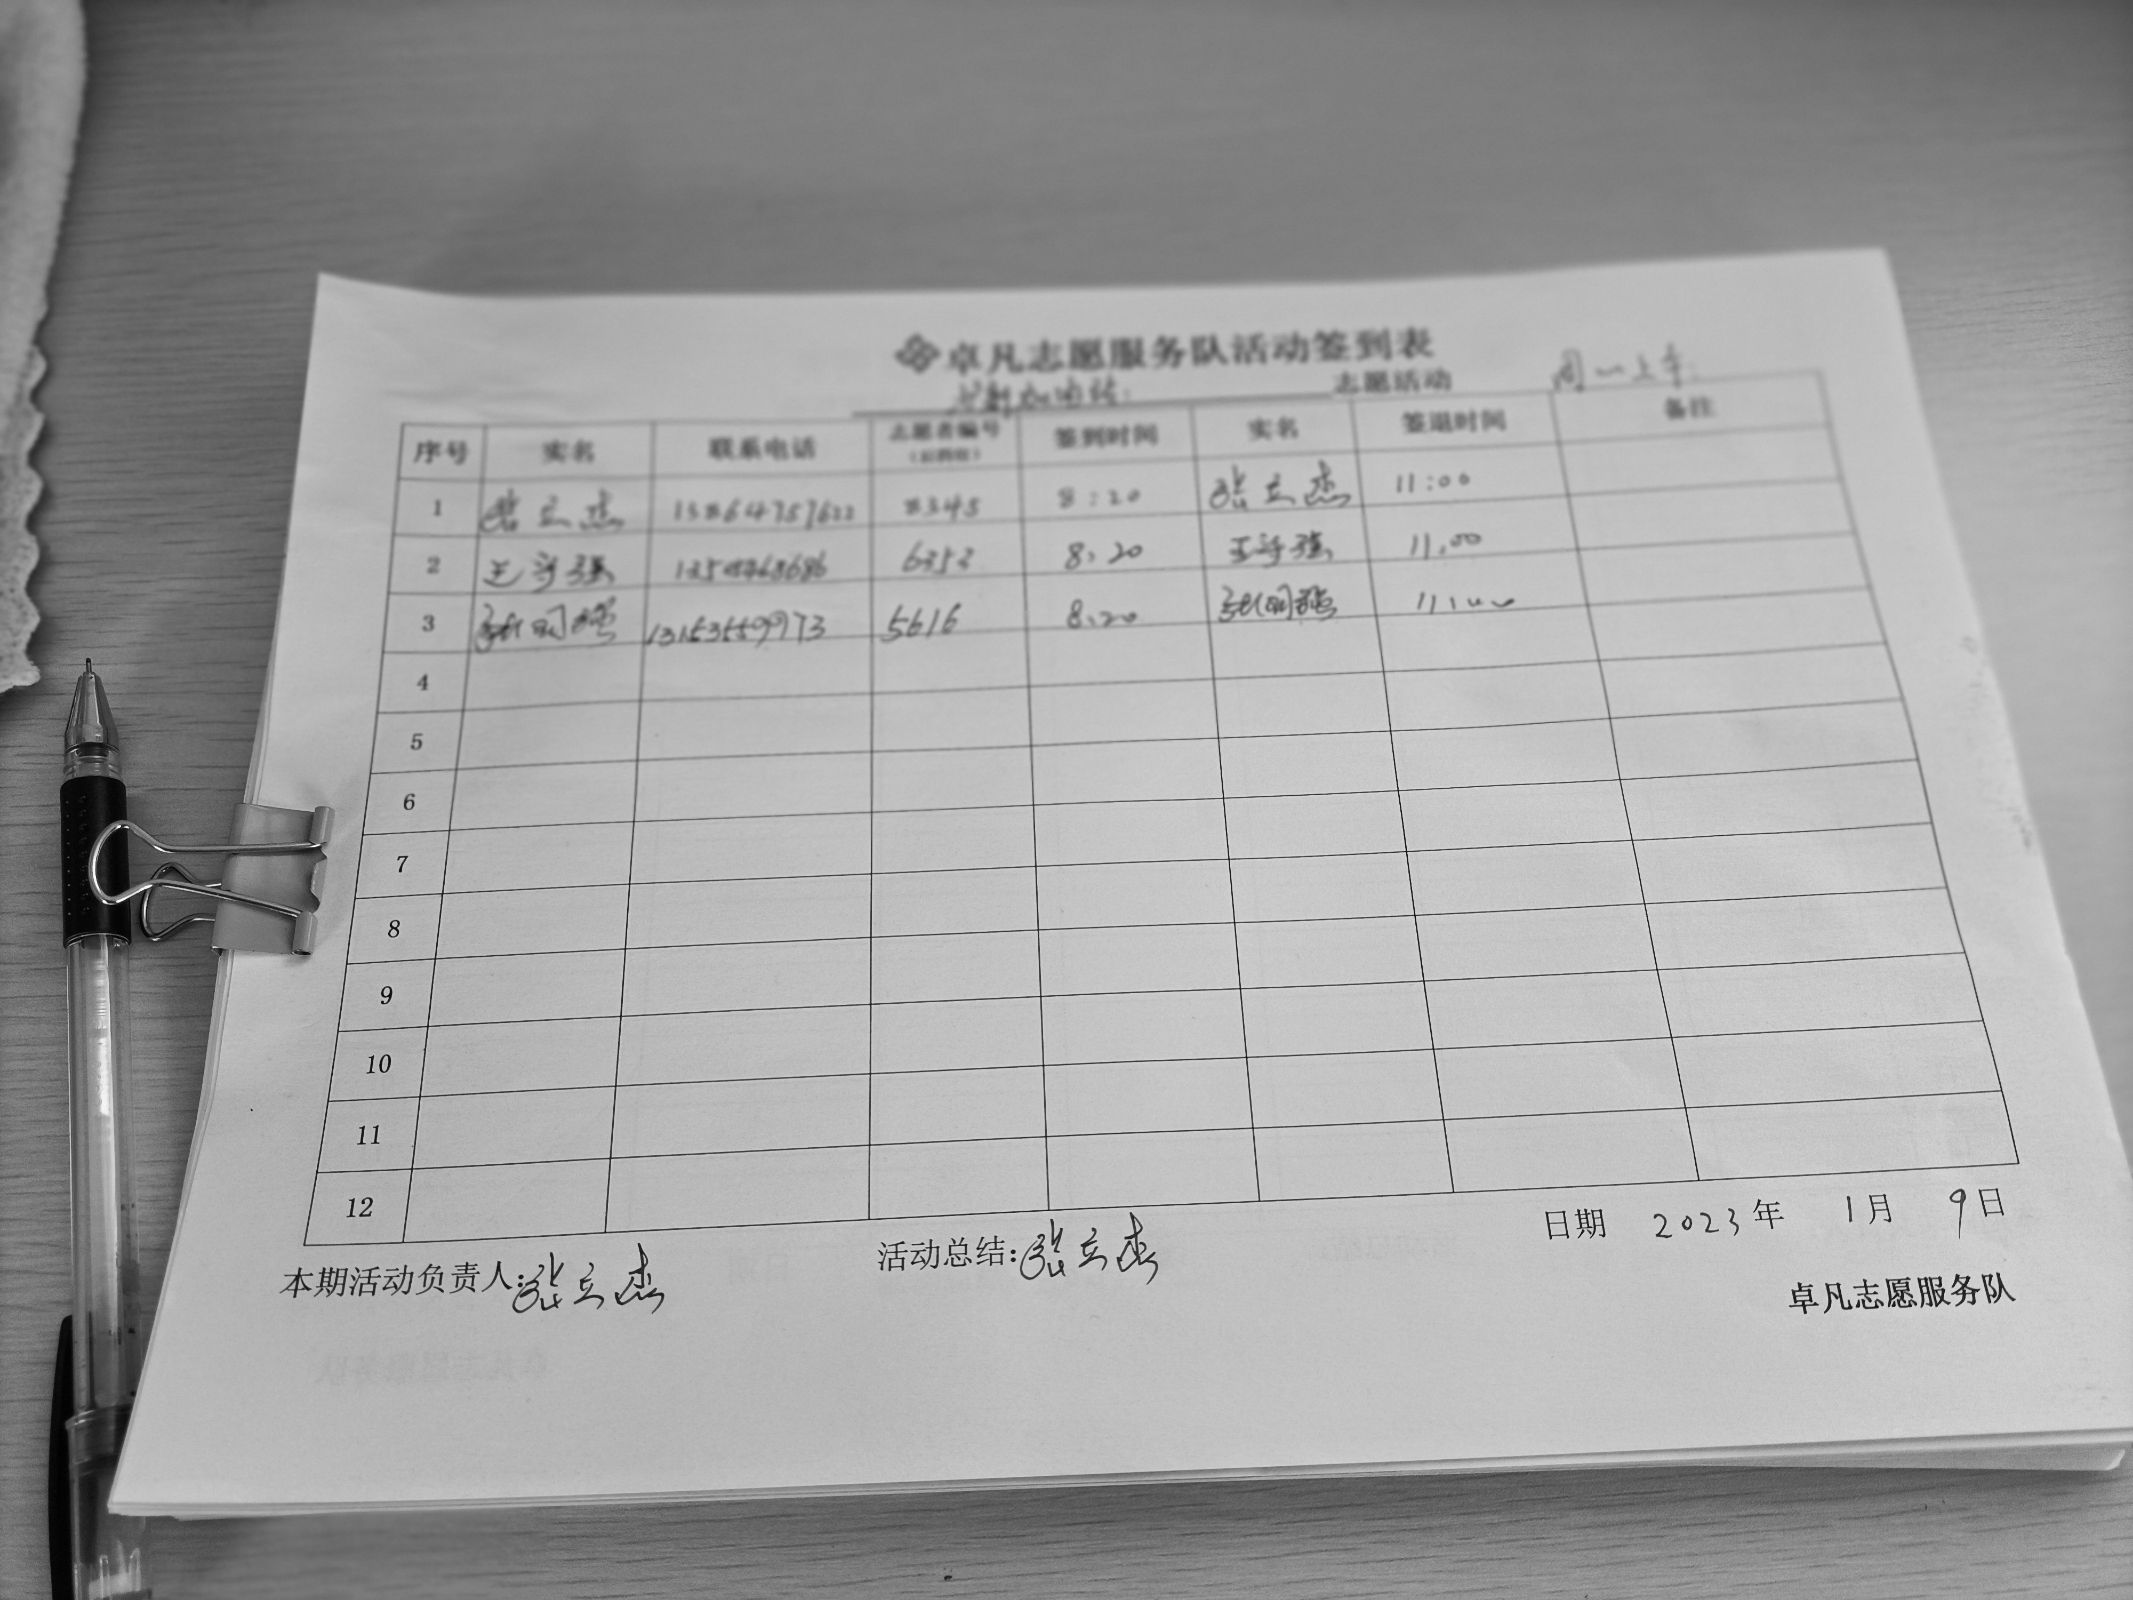 卓凡志愿服务队活动签到表
志愿活动 周一上午
序号 实名 联系电话 志愿者编号 签到时间 实名 签退时间 备注
1 张立杰 8345 8:20 张立杰 11:00
2 6353 8:20 11:00
3 13153559973 5616 8:20 11:00
4
5
6
7
8
9
10
11
12
日期 2023年 1月 9日
本期活动负责人:张立杰 活动总结:张立杰
卓凡志愿服务队